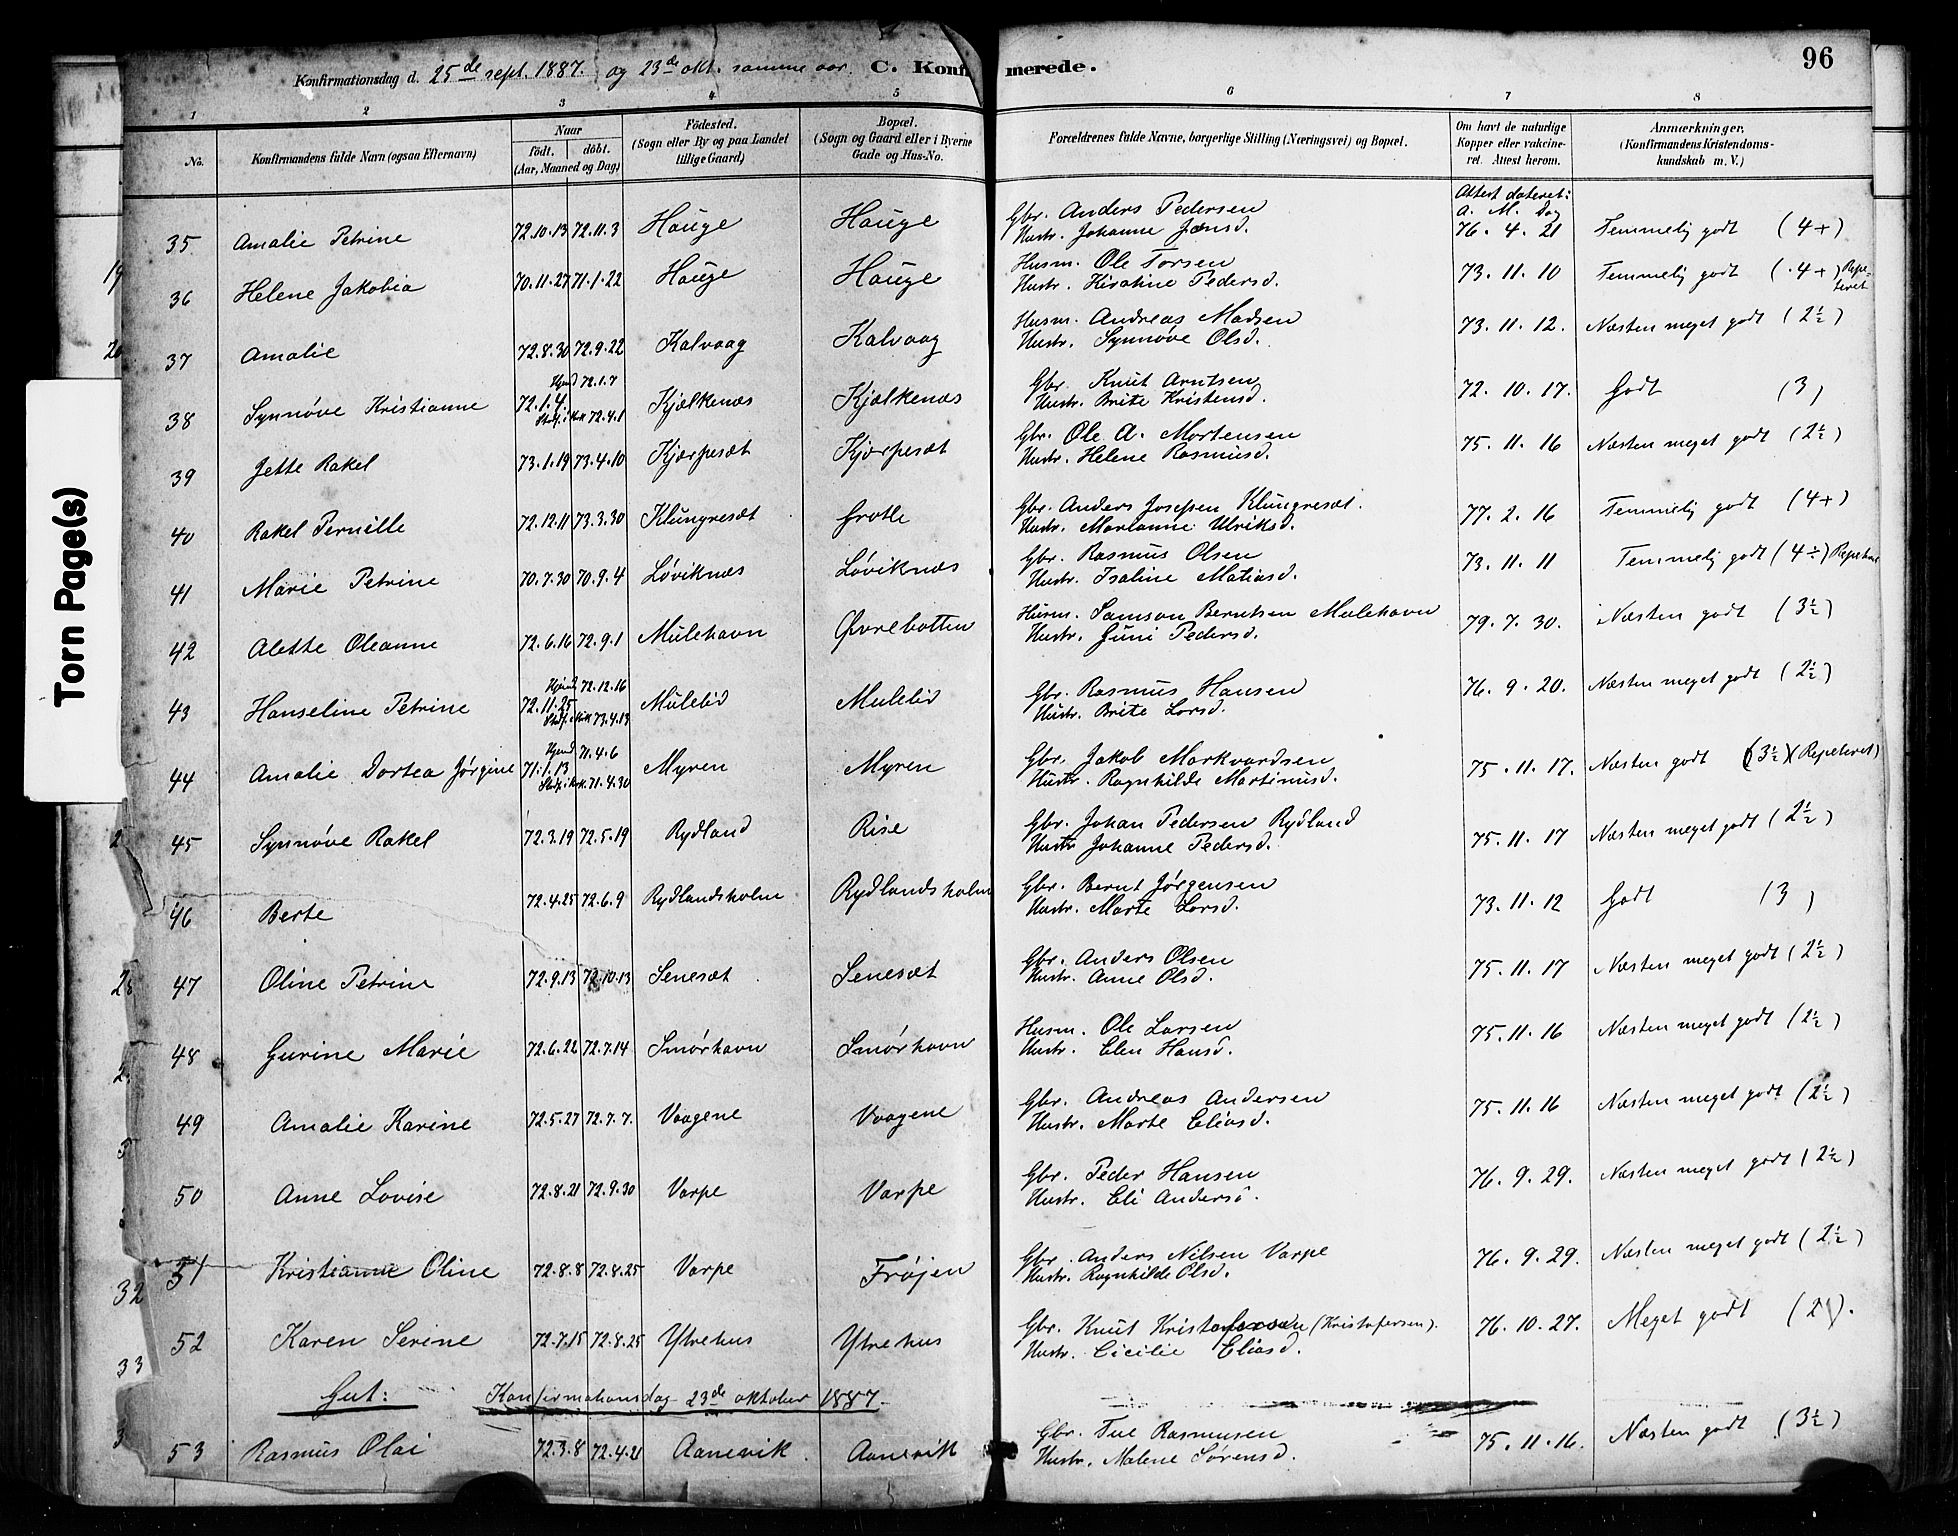 96
Konfirmationsdag d. 25de sept. 1887. og 23de okt. samme aar. C. Konfirmerede.
1 2 3 4 5 6 7 8
No.
Konfirmandens fulde Navn (ogsaa Efternavn)
Naar
født. døbt.
(Aar, Maaned og Dag)
Fødested.
(Sogn eller By og paa Landet
tillige Gaard)
Bopæl.
(Sogn og Gaard eller i Byerne
Gade og Hus-No.
Forældrenes fulde Navne, borgerlige Stilling (Næringsvei) og Bopæl.
Om havt de naturlige
Kopper eller vakcine-
ret. Attest herom.
Anmærkninger.
(Konfirmandens Kristendoms-
kundskab m. V.)
Attest dateret:
A. M. Dag
35 Amalie Petrine 72.10.13 72.11.3 Hauge Hauge Gbr. Anders Pedersen 76. 4. 21 Temmelig godt (4+)
Hustr. Johanne Jansd.
36 Helene Jakobia 70.11.27 71.1.22 Hauge Hauge Husm. Ole Torsen 73. 11. 10 Temmelig godt (4+) Repeteret
Hustr. Kirstine Pedersd.
37 Amalie 72.8.30 72.9.22 Kalvaag Kalvaag Husm. Andreas Madsen 73. 11. 12. Næsten meget godt (2½)
Hustr. Synnøve Olsd.
38 Synnøve Kristianne 72.1.4. Hjemd 72.1.7 Stadf. i Kirk 72.4.1 Kjelkenæs Kjelkenæs Gbr. Knut Arntsen 72. 10. 17. Godt (3)
Hustr. Brite Kristensd.
39 Jette Rakel 73.1.19 73.4.10 Kjærpesæt Kjørpesæt Gbr. Ole A. Mortensen 75. 11. 16 Næsten meget godt (2½)
Hustr. Helene Rasmusd.
40 Rakel Pernille 72.12.11 73.3.30 Klungresæt Grotle Gbr. Anders Josefsen Klungresæt. 77. 2. 16 Temmelig godt (4+)
Hustr. Marianne Ulriksd.
41 Marie Petrine 70.7.30 70.9.4 Løviknæs Løviknæs Gbr. Rasmus Olsen 73. 11. 11 Temmelig godt (4÷) Repeteret
Hustr. Isaline Matiasd.
42 Alette Oleanne 72.6.16 72.9.1 Mulehavn Øvrebotten Husm. Samson Berntsen Mulehavn 79. 7. 30. Næsten godt (3½)
Hustr. Juni Pedersd.
43 Hanseline Petrine 72.11.25 Hjemd 72.12.16 Stadf. i Kirk 73.4.13 Mulelid Mulelid Gbr. Rasmus Hansen 76. 9. 20. Næsten meget godt (2½)
Hustr. Brite Larsd.
44 Amalie Dortea Jørgine 71.1.13 Hjemd 71.4.6 Stadf. i Kirk 71.4.30 Myren Myren Gbr. Jakob Markvardsen 75. 11. 17. Næsten godt (3½) (Repeteret)
Hustr. Ragnhilde Martinusd.
45 Synnøve Rakel 72.3.19 72.5.19 Rydland Rise Gbr. Johan Pedersen Rydland 75. 11. 17 Næsten meget godt (2½)
Hustr. Johanne Pedersd.
46 Berte 72.4.25 72.6.9 Rydlandsholm Rydlandsholm Gbr. Bernt Jørgensen 73. 11. 12 Godt (3)
Hustr. Marte Larsd.
47 Oline Petrine 72.9.13 72.10.13 Senesæt Senesæt Gbr. Anders Olsen 75. 11. 17 Næsten meget godt (2½)
Hustr. Anne Olsd.
48 Gurine Marie 72.6.22 72.7.14 Smørhavn Smørhavn Husm. Ole Larsen 75. 11. 16 Næsten meget godt (2½)
Hustr. Elen Hansd.
49 Amalie Karine 72.5.27 72.7.7. Vaagene Vaagene Gbr. Andreas Andersen 75. 11. 16 Næsten meget godt (2½)
Hustr. Marte Eliasd.
50 Anne Lovise 72.8.21 72.9.30 Varpe Varpe Gbr. Peder Hansen 76. 9. 29. Næsten meget godt (2½)
Hustr. Eli Andersd.
51 Kristianne Oline 72.8.8 72.8.25 Varpe Frøjen Gbr. Anders Nilsen Varpe 76. 9. 29. Næsten meget godt (2½)
Hustr. Ragnhilde Olsd.
52 Karen Serine 72.7.15 72.8.25 Ytrehus Ytrehus Gbr. Knut Kristofersen (Kristofersen). 76. 10. 27. Meget godt (2).
Hustr. Cicilie Eliasd.
Gut: Konfirmationsdag 23de oktober 1887.
53 Rasmus Olai 72.3.8 72.4.21 Aanevik Aanevik Gbr. Tue Rasmusen 75. 11. 16. Næsten godt (3½)
Hustr. Malene Sørensd.
Torn Page(s)